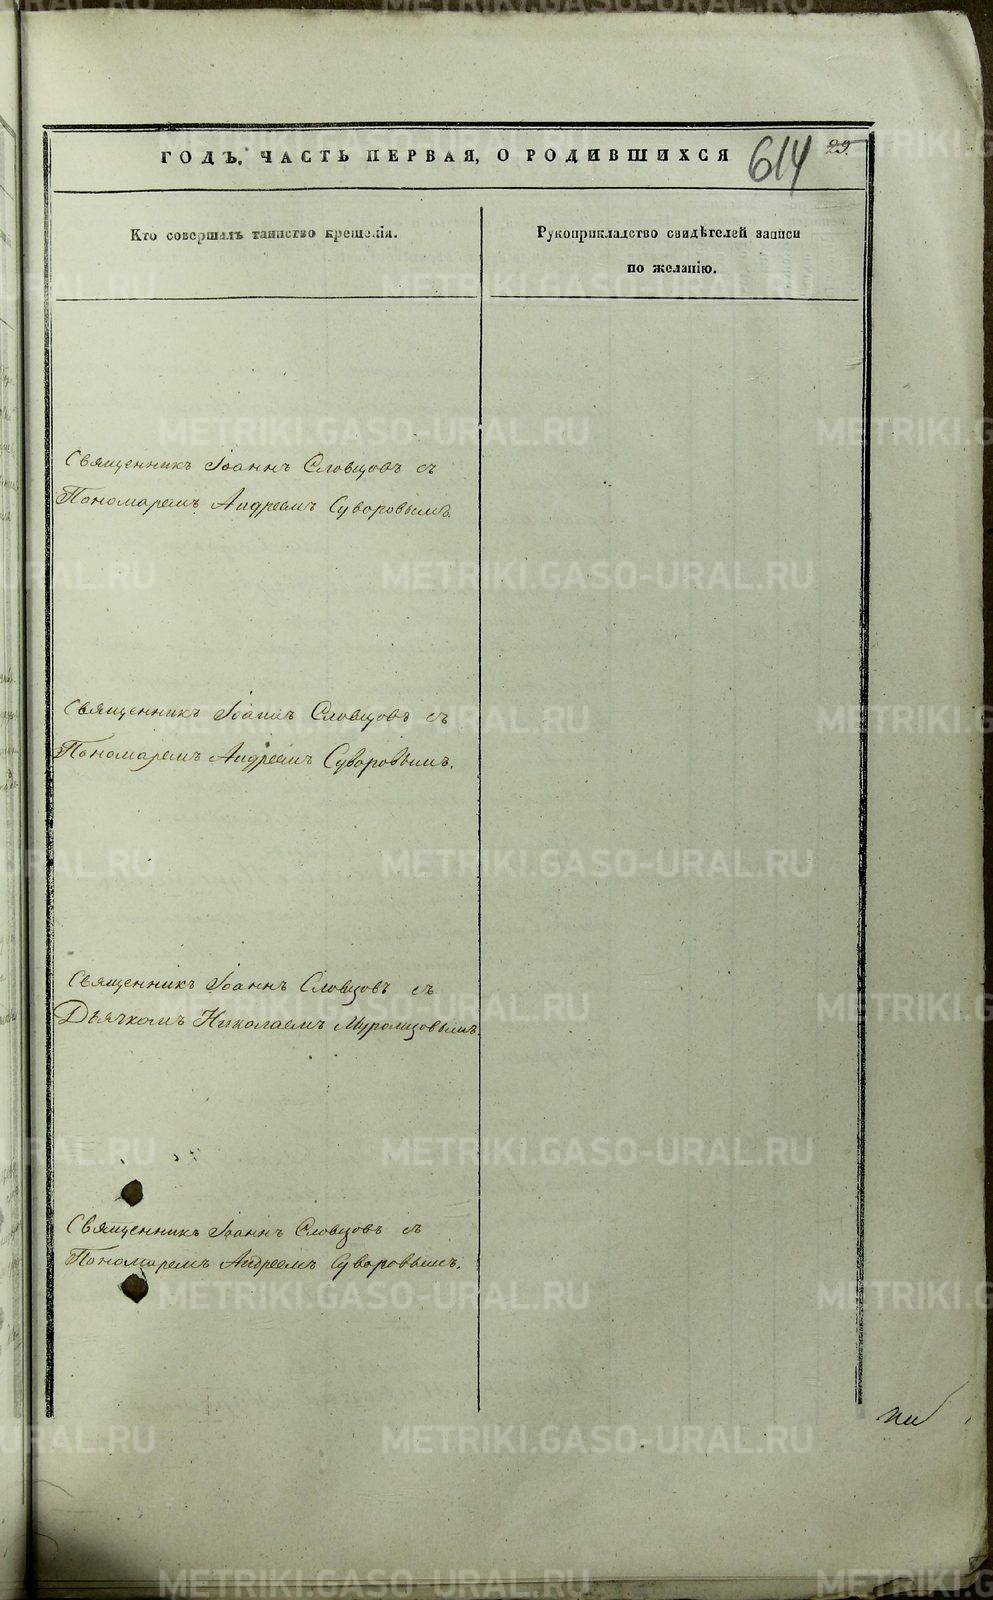 ГОДЪ. ЧАСТЬ ПЕРВАЯ, О РОДИВШИХСЯ
614
29.
Кто совершалъ таинство крещенія.
Рукоприкладство свидѣтелей записи
по желанію.
Священникъ Іоаннъ Словцовъ съ
Пономаремъ Андреемъ Суворовымъ.
Священникъ Іоаннъ Словцовъ съ
Пономаремъ Андреемъ Суворовымъ.
Священникъ Іоаннъ Словцовъ съ
Дьячкомъ Николаемъ Муромцовымъ.
Священникъ Іоаннъ Словцовъ съ
Пономаремъ Андреемъ Суворовымъ.
METRIKI.GASO-URAL.RU